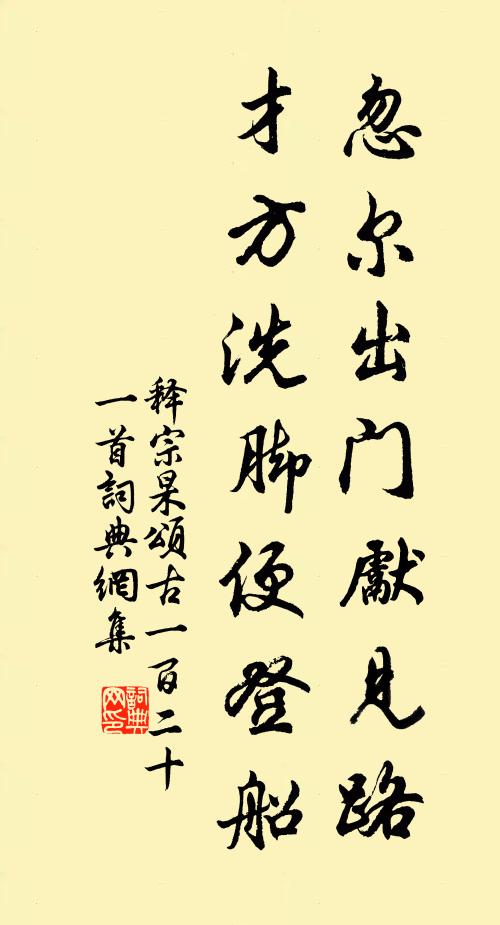 忽尔出门獻见路
才方洗脚便登船
释宗杲頌古一百二十
一首詞典網集
詞典
网印